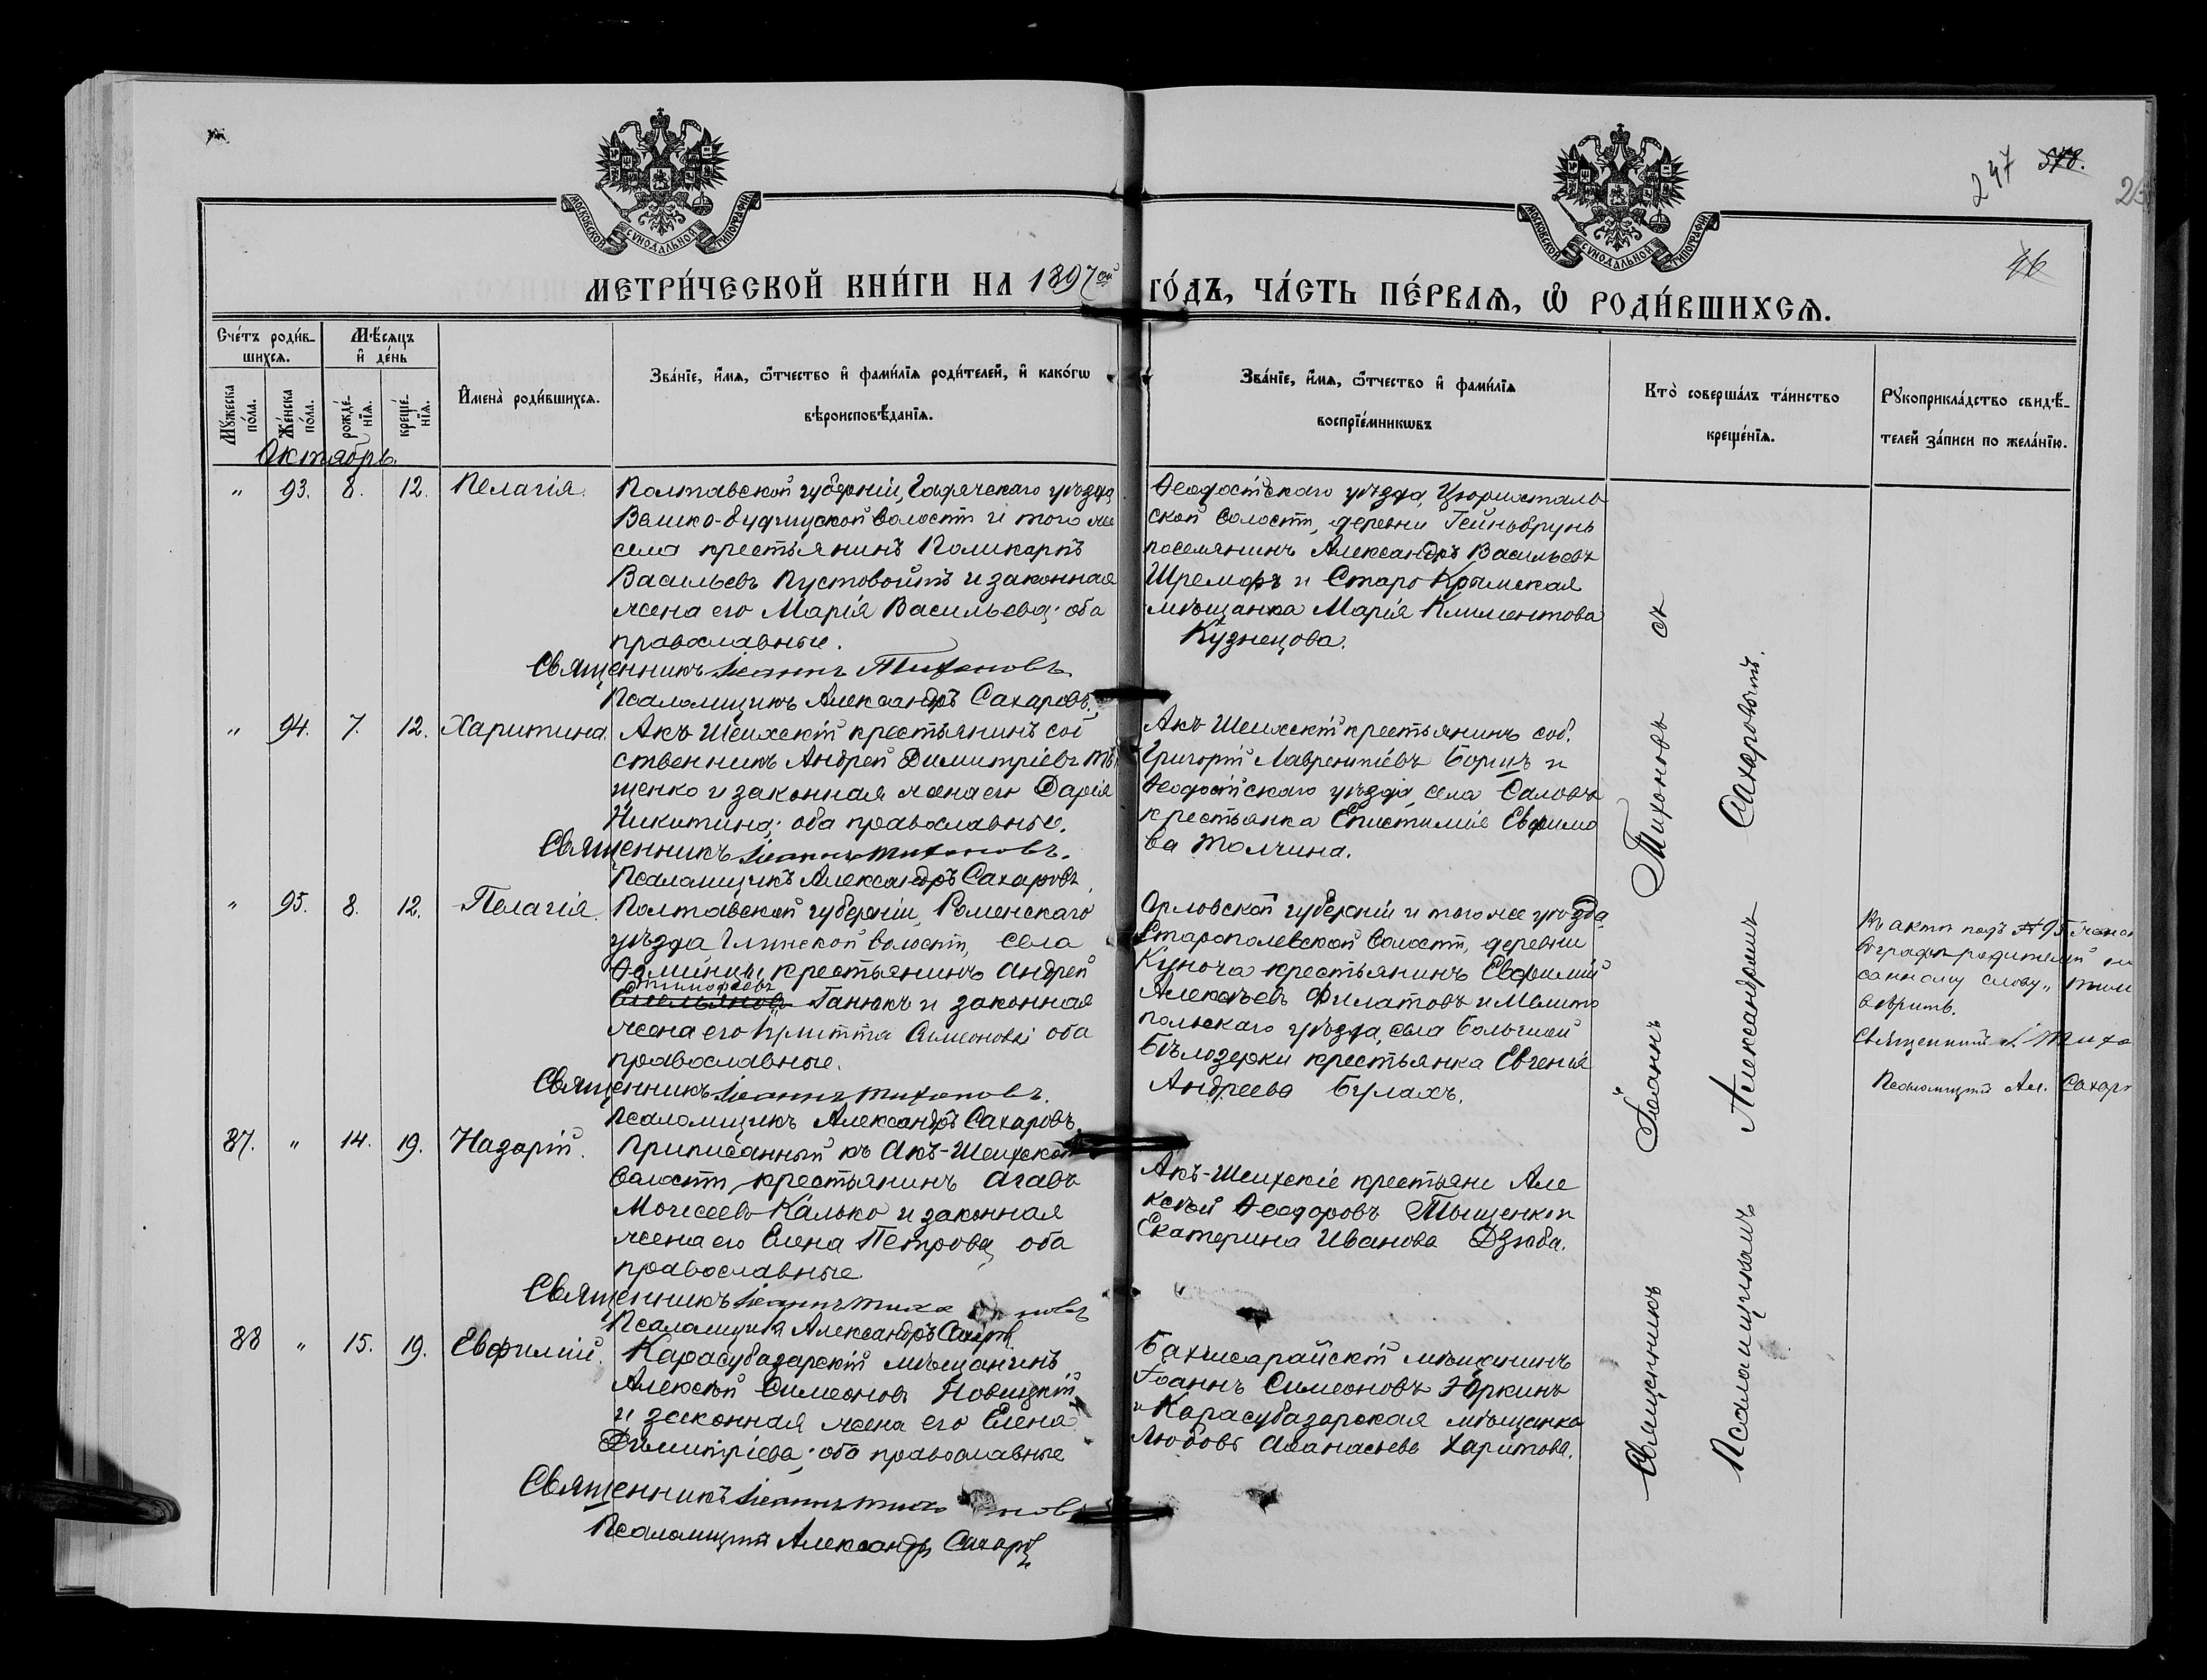 247 578.
46
МОСКОВСКОЙ СѴНОДАЛЬНОЙ ТИПОГРАФІИ
МОСКОВСКОЙ СѴНОДАЛЬНОЙ ТИПОГРАФІИ
МЕТРИ́ЧЕСКОЙ КНИ́ГИ НА 1897ой ГО́ДЪ, ЧА́СТЬ ПЕ́РВАѦ, Ѿ РОДИ́ВШИХСѦ.
Сче́тъ роди́в-
шихсѧ.
Мѣ́сѧцъ
и де́нь
Мꙋжеска по́ла.
Же́нска по́ла.
рожде́-
нїѧ.
креще́-
нїѧ.
И҆мена̀ роди́вшихсѧ.
Зва́нїе, и҆́мѧ, ѻ҆́тчество и҆ фами́лїѧ роди́телей, и҆ како́гѡ
вѣроисповѣ́данїѧ.
Зва́нїе, и҆́мѧ, ѻ҆́тчество и҆ фами́лїѧ
воспрїе́мникѡвъ
Кто̀ соверша́лъ та́инство
креще́нїѧ.
Рꙋкоприкла́дство свидѣ́-
телей за́писи по жела́нїю.
Октябрь.
" 93. 8. 12. Пелагія.
Полтавской губерніи, Гадячскаго уѣзда
волости и того же
села крестьянинъ Поликарпъ
Васильевъ Пустовойтъ и законная
жена его Марія Васильева; оба
православные.
Священникъ Іоаннъ Тихоновъ
Псаломщикъ Александръ Сахаровъ.
Ѳеодосійскаго уѣзда, Цюрихсталь
ской волости, деревни Гейнбрунъ
поселянинъ Александръ Васильевъ
и Старо Крымская
мѣщанка Марія Климентова
Кузнецова.
" 94. 7. 12. Харитина.
Акъ Шеихскій крестьянинъ соб
ственникъ Андрей Димитріевъ Ти
щенко и законная жена его Дарія
Никитина; оба православные.
Священникъ Іоаннъ Тихоновъ.
Псаломщикъ Александръ Сахаровъ
Акъ Шеихскій крестьянинъ соб.
Григорій Лаврентіевъ Борщъ и
Ѳеодосійскаго уѣзда, села Саловъ
крестьянка Епистимія Евфимо
ва Толчина.
" 95. 8. 12. Пелагія.
Полтавской губерніи, Роменскаго
уѣзда Глинской волости, села
крестьянинъ Андрей
Тимофеевъ
Емельяновъ Ганюкъ и законная
жена его Симеонова; оба
православные.
Священникъ Іоаннъ Тихоновъ.
Псаломщикъ Александръ Сахаровъ
Орловской губерніи и того же уѣзда,
Старополевской волости, деревни
крестьянинъ Евфимій
Алексѣевъ Филатовъ и Мелито
польскаго уѣзда, села Большой
Бѣлозерки крестьянка Евгенія
Андреева Булахъ.
Въ актѣ подъ № 95
въ графѣ родителей
санному слову "
вѣрить.
Священникъ І. Тихо
Псаломщикъ Ал. Сахаро
87. " 14. 19. Назарій.
Приписанный къ Акъ-Шеихской
волости, крестьянинъ
Моисеевъ Калько и законная
жена его Елена Петрова, оба
православные
Священникъ Іоаннъ Тихоновъ
Псаломщикъ Александръ Сахаровъ
Акъ-Шеихскіе крестьяне Але
ксѣй Ѳеодоровъ Тыщенко и
Екатерина Иванова Дзюба.
88 " 15. 19. Евфимій.
Карасубазарскій мѣщанинъ
Алексѣй Симеоновъ Новицкій
и законная жена его Елена
Димитріева; оба православные
Священникъ Іоаннъ Тихоновъ
Псаломщикъ Александръ Сахаровъ
Бахчисарайскій мѣщанинъ
Іоаннъ Симеоновъ Юркинъ
и Карасубазарская мѣщанка
Любовь Аѳанасьева Харитова.
Священникъ Іоаннъ Тихоновъ съ
Псаломщикомъ Александромъ Сахаровымъ.